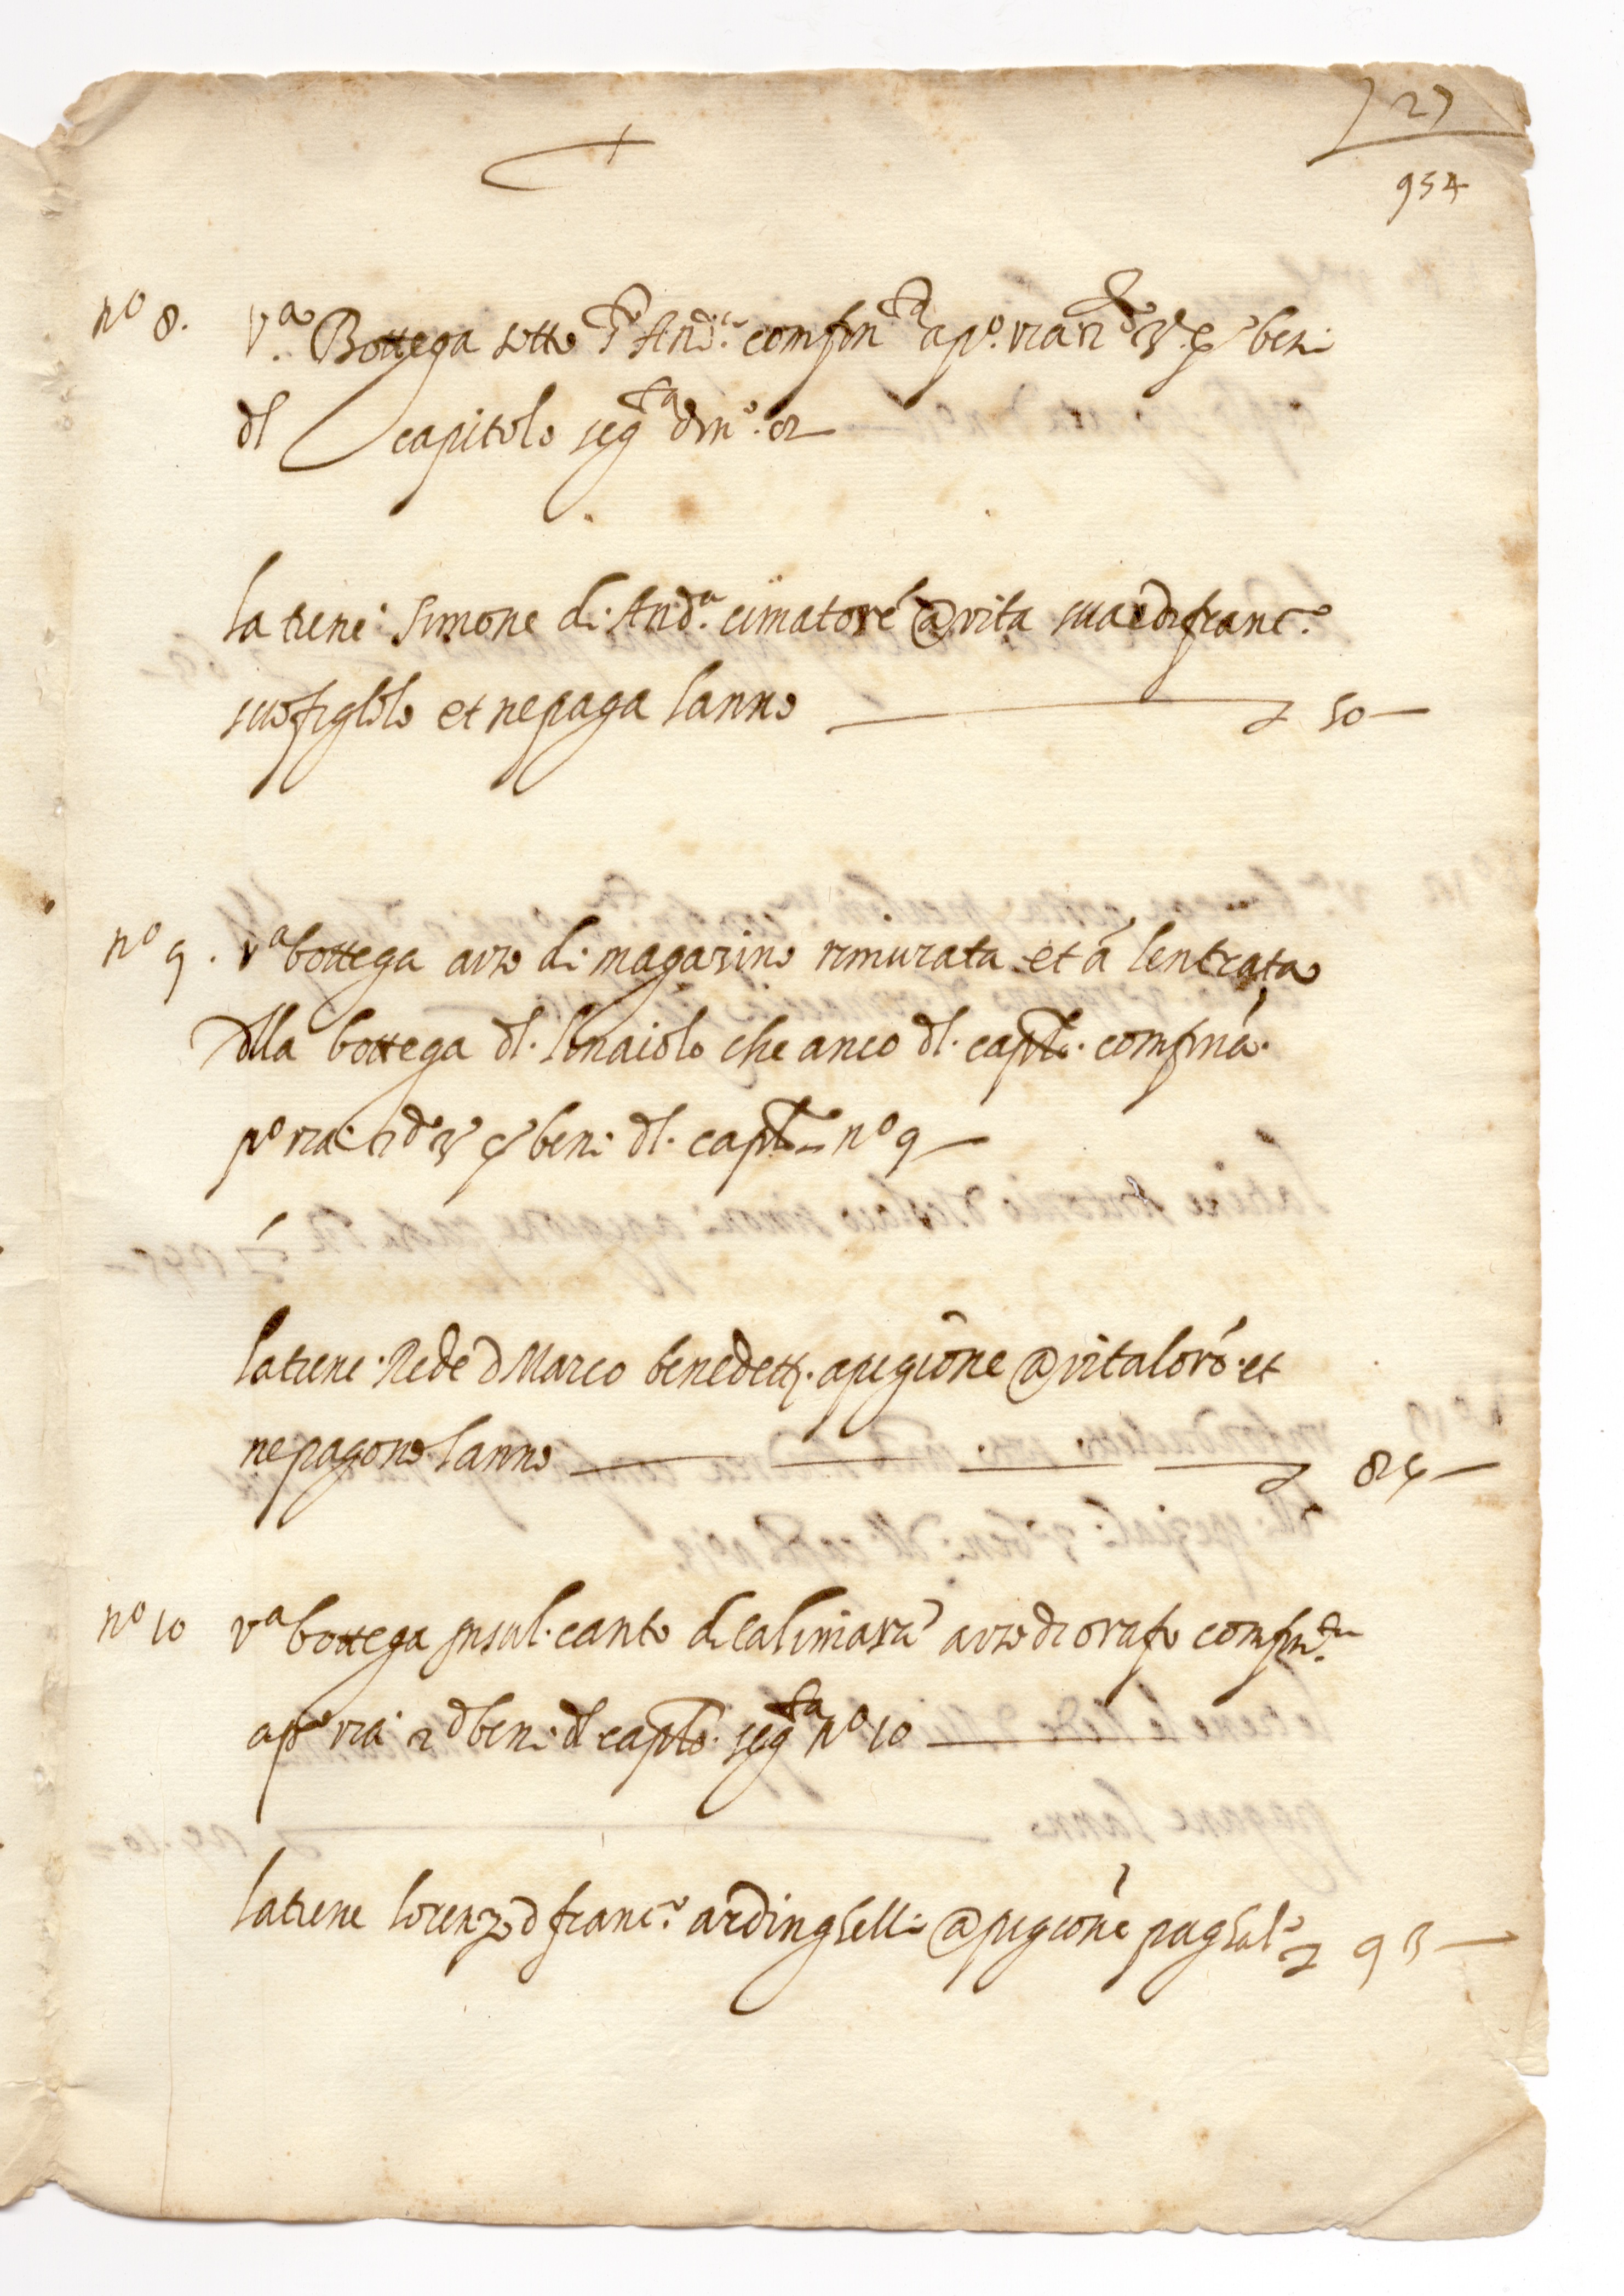 27
954
nº 8. vª Bottega sotto Sᵗº Andᵃ. confinᵗᵃ apº. via 2º 3º e 4º beni
dl capitolo segᵗᵃ di nº. 8
la tiene Simone di Andᵃ. cimatore @ vita sua e di francº.
suo figlolo et ne paga lanno 50
nº 9. vª bottega avso di magazino rimurata et á lentrata
dlla bottega dl. linaiolo che anco dl. capᵗˡº. confina.
pº via 2º 3º e 4º beni dl. capᵗˡº nº 9
la tiene Rede d Marco benedetti. a pigione @ vita loro. et
ne pagono lanno 84
nº 10 vª bottega in sul. canto di calimara avso di orafo confinᵗᵃ
apº via 2º beni dl capᵗˡº. segᵗᵃ nº 10
la tiene lorenzo d francº. ardinghelli @ pigione pag lalº 93